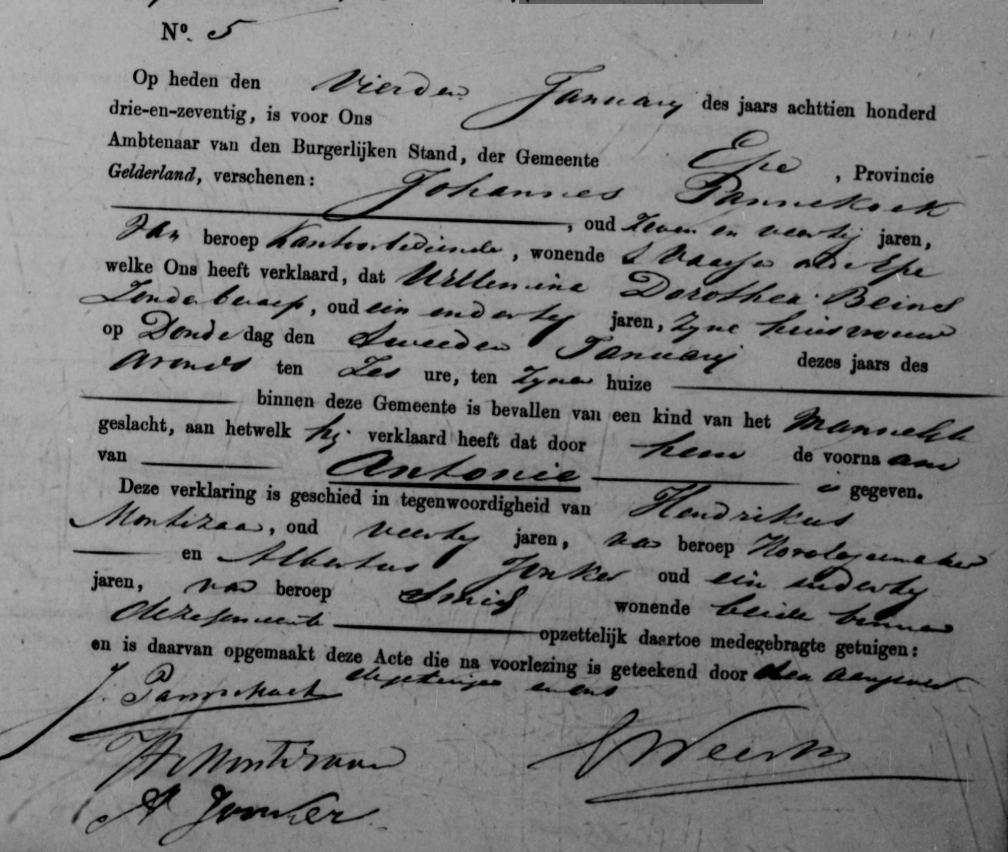 No. 5
Op heden den Vierden January des jaars achttien honderd
drie-en-zeventig, is voor Ons
Ambtenaar van den Burgerlijken Stand, der Gemeente Epe, Provincie
Gelderland, verschenen: Johannes Pannekoek
, oud Zeven en veertig jaren,
van beroep Kantoorbediende, wonende Epe
welke Ons heeft verklaard, dat Willemina Dorothea Beins
Zonder beroep, oud een en dertig jaren, Zyne huisvrouw
op Donderdag den Tweeden January dezes jaars des
avonds ten Zes ure, ten Zynen huize
binnen deze Gemeente is bevallen van een kind van het Mannelijk
geslacht, aan hetwelk hij verklaard heeft dat door hem de voornaam
van Antonie is gegeven.
Deze verklaring is geschied in tegenwoordigheid van Hendrikus
Montizaan, oud veertig jaren, van beroep Horologiemaker
en Albertus Jonker oud een en dertig
jaren, van beroep Smid wonende beide binnen
deze gemeente opzettelijk daartoe medegebragte getuigen:
en is daarvan opgemaakt deze Acte die na voorlezing is geteekend door den Aangever
de getuigen en ons
J. Pannekoek
H Montizaan
A Jonker